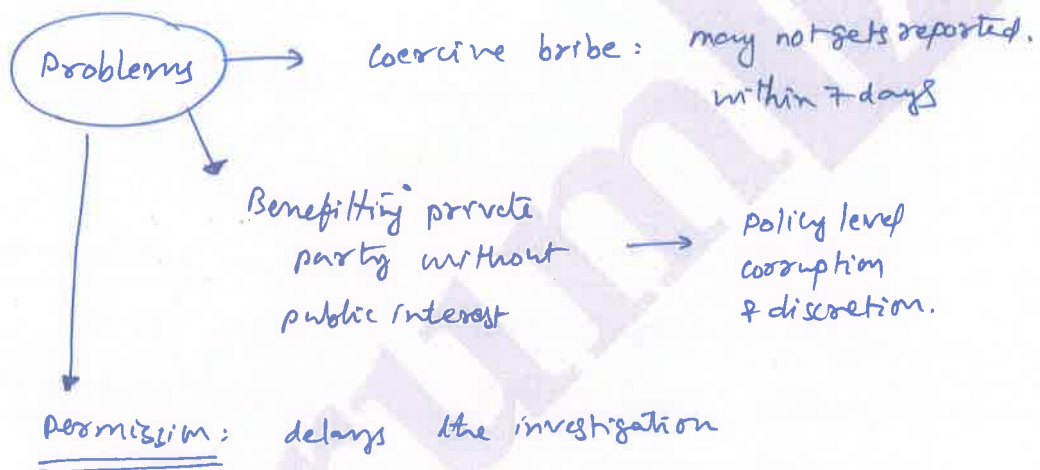 Problems
Coercive bribe: may not gets reported.
within 7 days
Benefitting private
party without
public interest
policy level
corruption
& discretion.
Permission: delays the investigation